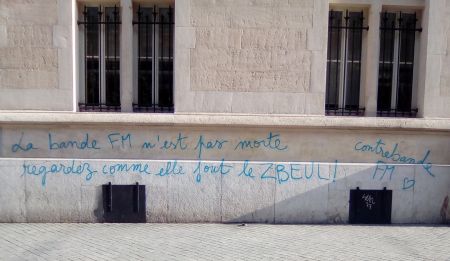 La bande FM n'est pas morte
regardez comme elle fout le ZBEUL !
contrebande
FM